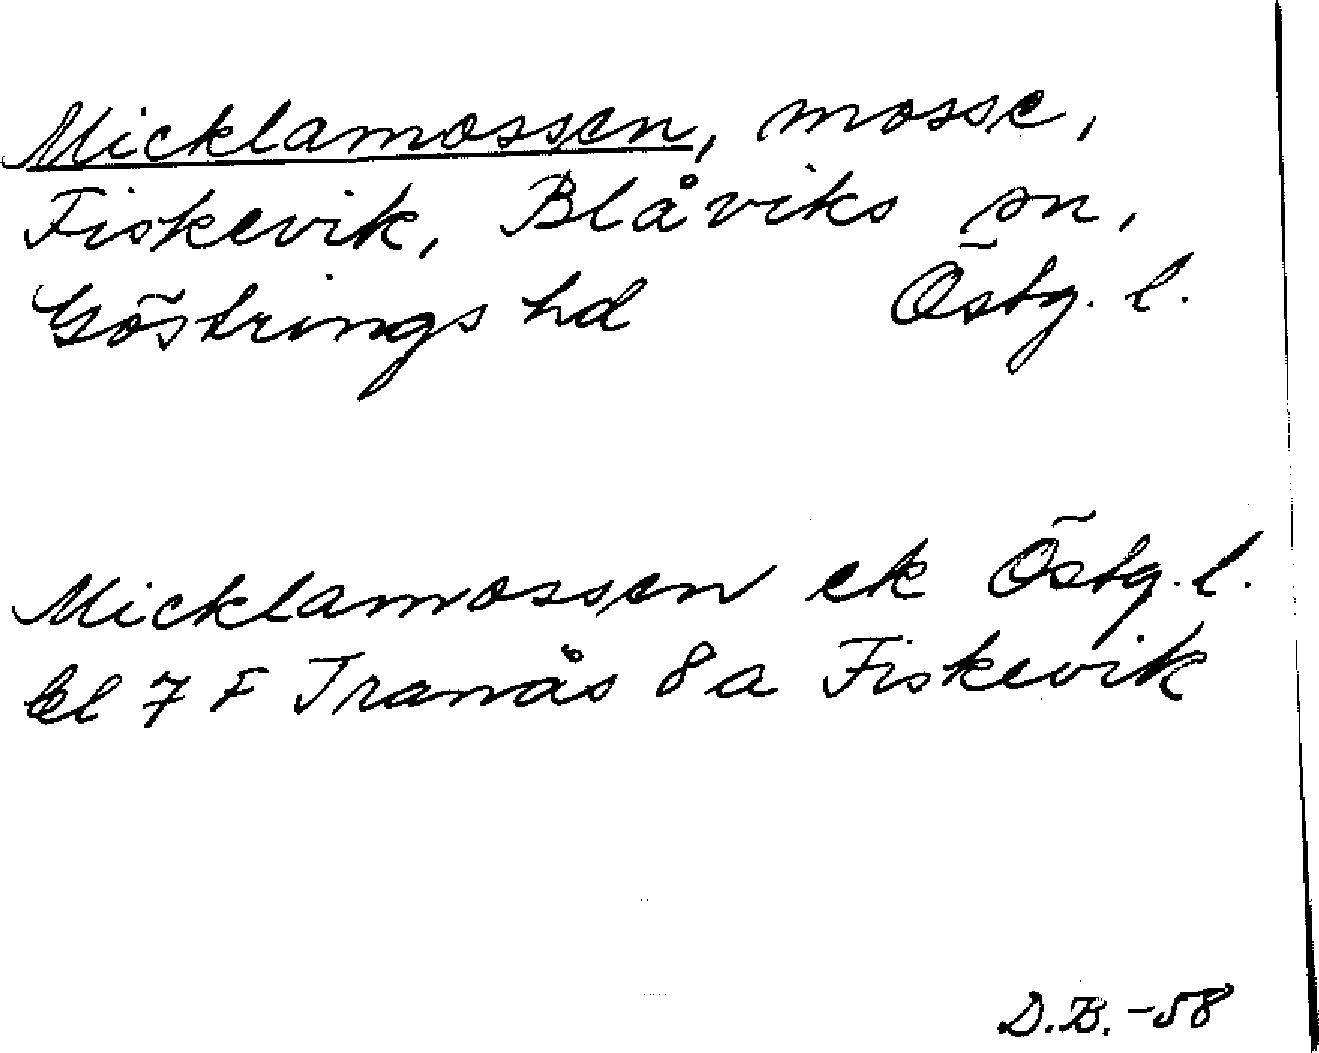 Micklamossen, mosse,
Fiskevik, Blåviks sn,
Göstrings hd Östg. l.
Micklamossen ek Östg. l.
bl 7 F Tranås 8 a Fiskevik
D.B. -58